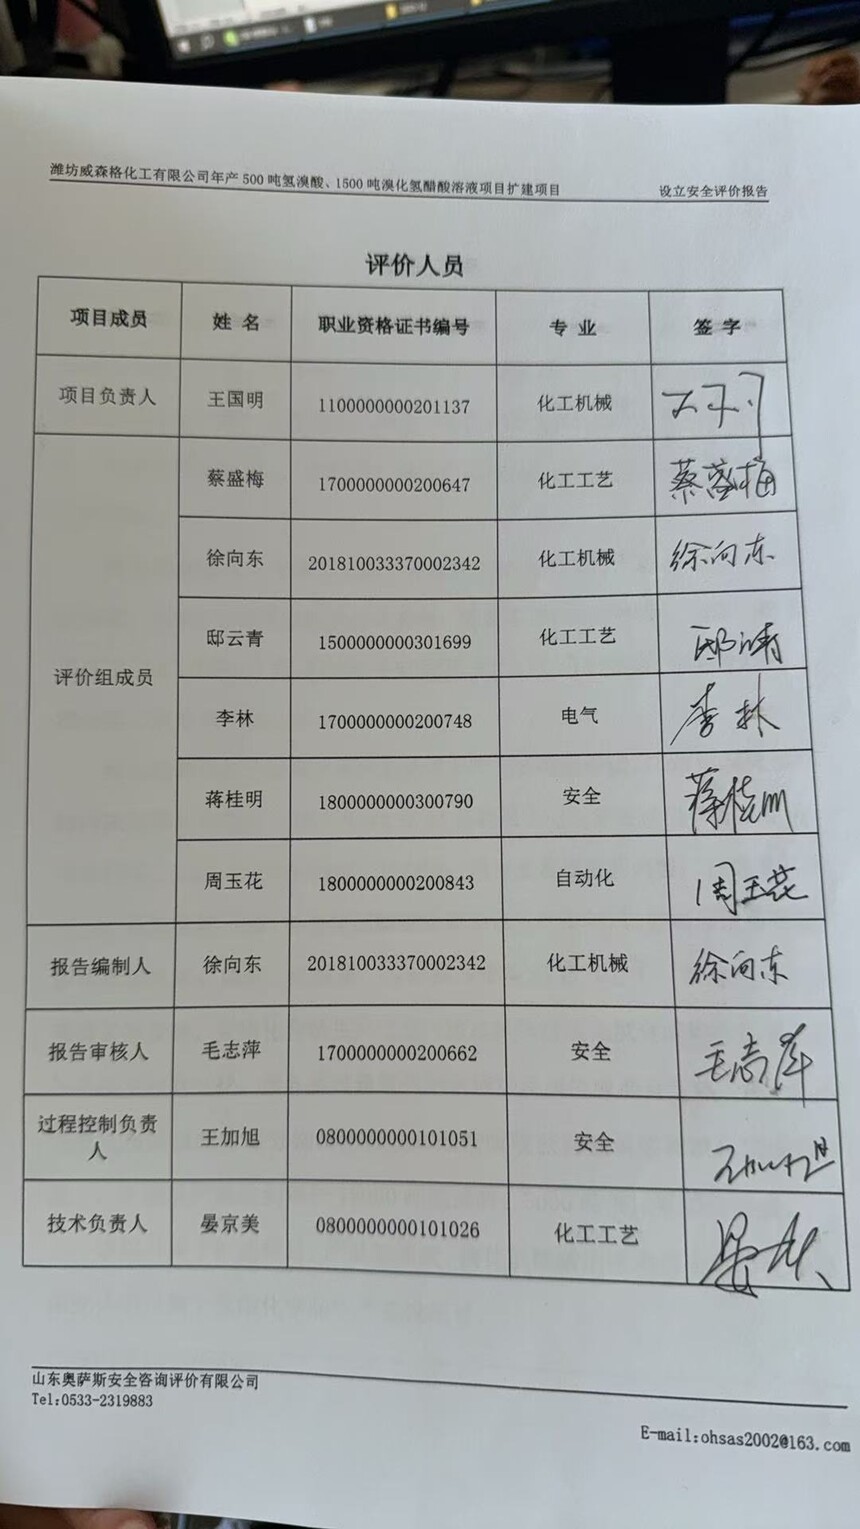 潍坊威森格化工有限公司年产 500 吨氢溴酸、1500 吨溴化氢醋酸溶液项目扩建项目 设立安全评价报告
评价人员
项目成员 姓 名 职业资格证书编号 专 业 签 字
项目负责人 王国明 1100000000201137 化工机械
蔡盛梅 1700000000200647 化工工艺 蔡盛梅
徐向东 201810033370002342 化工机械 徐向东
邸云青 1500000000301699 化工工艺
评价组成员
李林 1700000000200748 电气 李林
蒋桂明 1800000000300790 安全 蒋桂明
周玉花 1800000000200843 自动化 周玉花
报告编制人 徐向东 201810033370002342 化工机械 徐向东
报告审核人 毛志萍 1700000000200662 安全 毛志萍
过程控制负责
人 王加旭 0800000000101051 安全
技术负责人 晏京美 0800000000101026 化工工艺
山东奥萨斯安全咨询评价有限公司
Tel:0533-2319883
E-mail:ohsas2002@163.com